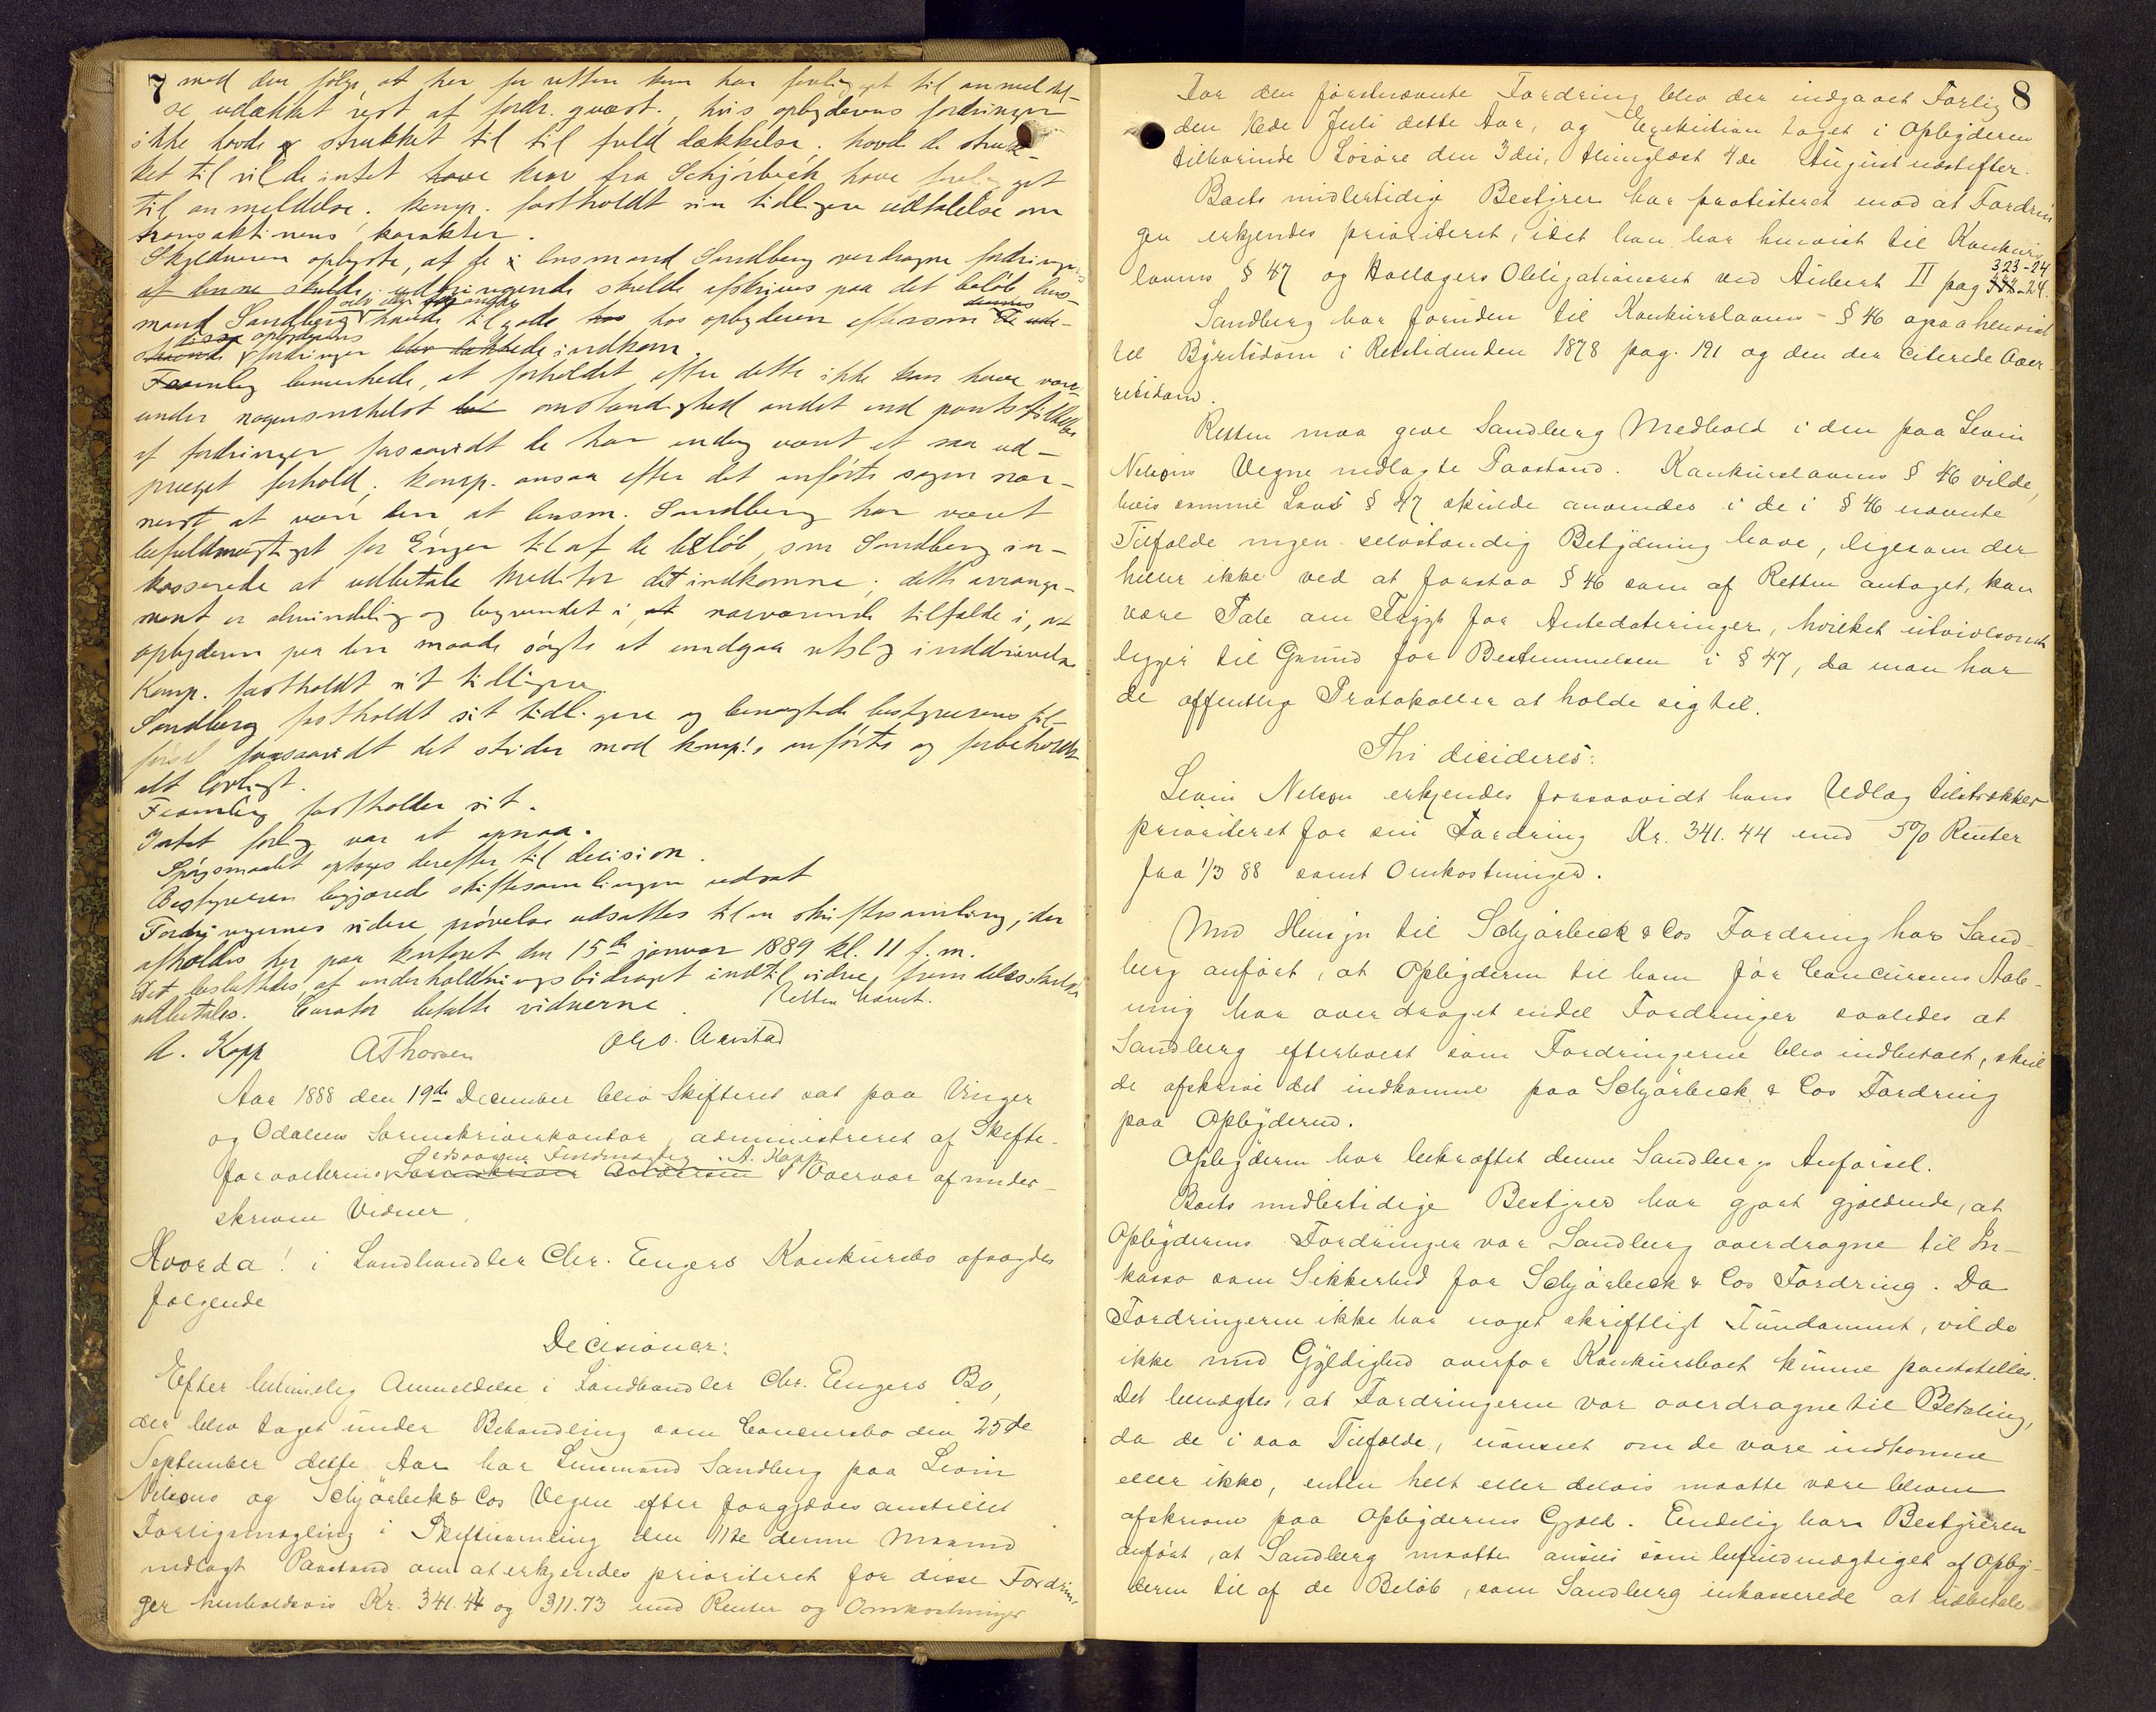 7
med den følge, at her for retten kun har foreligget til anmeldel-
se udækket rest af fordr. qvæst., hvis opbyderens fordringer
ikke havde strukket til til fuld dækkelse. havde de struk-
ket til vilde intet krav fra Schjørbeck have foreligget
til anmeldelse. komp. fastholdt sin tidligere udtalelse om
transaktionens karakter.
Skyldneren oplyste, at de lensmand Sandberg verdragne fordringer
af denne skulde udbringende skulde afskrives paa det beløb lens-
mand Sandberg havde tilgode hos opbyderen eftersom
disse opbyderens fordringer indkom
Framley bemerkede, at forholdet efter dette ikke kan have været
under nogensomhelst omstændighed andet end pantstillelse
af fordringer forsaavidt de har endog været et saa ud-
præget forhold. komp. ansaa efter det anførte sagen nær-
mest at være den at lensm. Sandberg har været
befuldmægtiget for Enger til af de beløb, som Sandberg in-
kasserede at udbetale kreditor det indkomne; dette arrange-
ment er almindelig og begrundet i nærværende tilfælde i, at
opbyderen paa den maade søgte at undgaa retslig inddrivelse
Komp. fastholdt sit tidligere.
Sandberg fastholdt sit tidligere og benegtede bestyrerens til-
førsel forsaavidt det strider mod komp's anførte og forbeholdt
alt lovligt.
Framley fastholder sit.
Intet forlig var at opnaa.
Spørgsmaalet optoges derefter til decision.
Bestyreren begjærede skiftesamlingen udsat
Fordringernes videre prøvelse udsattes til en skiftesamling, der
afholdes her paa kontoret den 15de januar 1889 kl. 11 f. m.
Det besluttedes, at underholdningsbidraget indtil videre fremdeles skulde
udbetales. Curator betalte vidnerne. Retten hævet.
A. Kopp AThorsen Ole O. Aarstad
Aar 1888 den 19de December blev Skifteret sat paa Vinger
og Odalens Sorenskriverkontor, administreret af Skifte-
forvalterens Edsvorne Fuldmægtig A. Kopp Overvær af under-
skrevne Vidner,
Hvorda! i Landhandler Chr. Engers Konkursbo afsagdes
følgende
Decisioner:
Efter betimelig Anmeldelse i Landhandler Chr. Engers Bo,
der blev taget under Behandling som Concursbo den 25de
September dette Aar har Lensmand Sandberg paa Levin
Nilsons og Schjørbek & Cos Vegne efter forgjæves anstillet
Forligsmægling i Skiftesamling den 11te denne Maaned
nedlagt Paastand om at erkjendes prioriteret for disse Fordrin-
ger henholdsvis Kr. 341.44 og 311.73 med Renter og Omkostninger
8
For den førstnævnte Fordring blev der indgaaet Forlig
den 16de Juli dette Aar, og Exekution taget i Opbyderen
tilhørende Løsøre den 3die, thinglæst 4de August næstefter.
Boets midlertidige Bestyrer har protesteret mod at Fordrin
gen erkjendes prioriteret, idet han har henvist til Konkurs
lovens § 47 og Hallagers Obligationsret ved Aubert II pag 323-24.
Sandberg har foruden til Konkurslovens § 46 ogsaa henvist
til Byretsdom i Retstidenden 1878 pag. 191 og den der citerede Over
retsdom.
Retten maa give Sandberg Medhold i den paa Levin
Nelsons Vegne nedlagte Paastand. Konkurslovens § 46 vilde,
hvis samme Lovs § 47 skulde anvendes i de i § 46 nævnte
Tilfælde ingen selvstændig Betydning have, ligesom der
heller ikke ved at forstaa § 46 som af Retten antaget, kan
være Tale om Frygt for Antedateringer, hvilket utvivlsomt
ligger til Grund for Bestemmelsen i § 47, da man har
de offentlige Protokoller at holde sig til.
Thi decideres:
Levin Nelson erkjendes forsaavidt hans Udlæg tilstrækker
prioriteret for sin Fordring Kr. 341.44 med 5% Renter
fra 1/3 88 samt Omkostninger.
Med Hensyn til Schjørbeck & Cos Fordring har Sand-
berg anført, at Opbyderen til ham før Concursens Aab-
ning har overdraget endel Fordringer saaledes at
Sandberg efterhvert som Fordringerne blev indbetalt, skul
de afskrive det indkomne paa Schjørbeck & Cos Fordring
paa Opbyderen.
Opbyderen har bekræftet denne Sandbergs Anførsel.
Boets midlertidige Bestyrer har gjort gjældende, at
Opbyderens Fordringer var Sandberg overdragne til In-
kasso som Sikkerhed for Schjørbeck & Cos Fordring. Da
Fordringerne ikke har noget skriftligt Fundament, vilde
ikke med Gyldighed overfor Konkursboet kunne pantstilles.
Det benegtes, at Fordringerne var overdragne til Betaling,
da de i saa Tilfælde, uanseet om de vare indkomne
eller ikke, enten helt eller delvis maatte være bleven
afskrevne paa Opbyderens Gjæld. Endelig har Bestyreren
anført, at Sandberg maatte ansees som befuldmægtiget af Opby-
deren til af de Beløb, som Sandberg inkasserede at udbetale